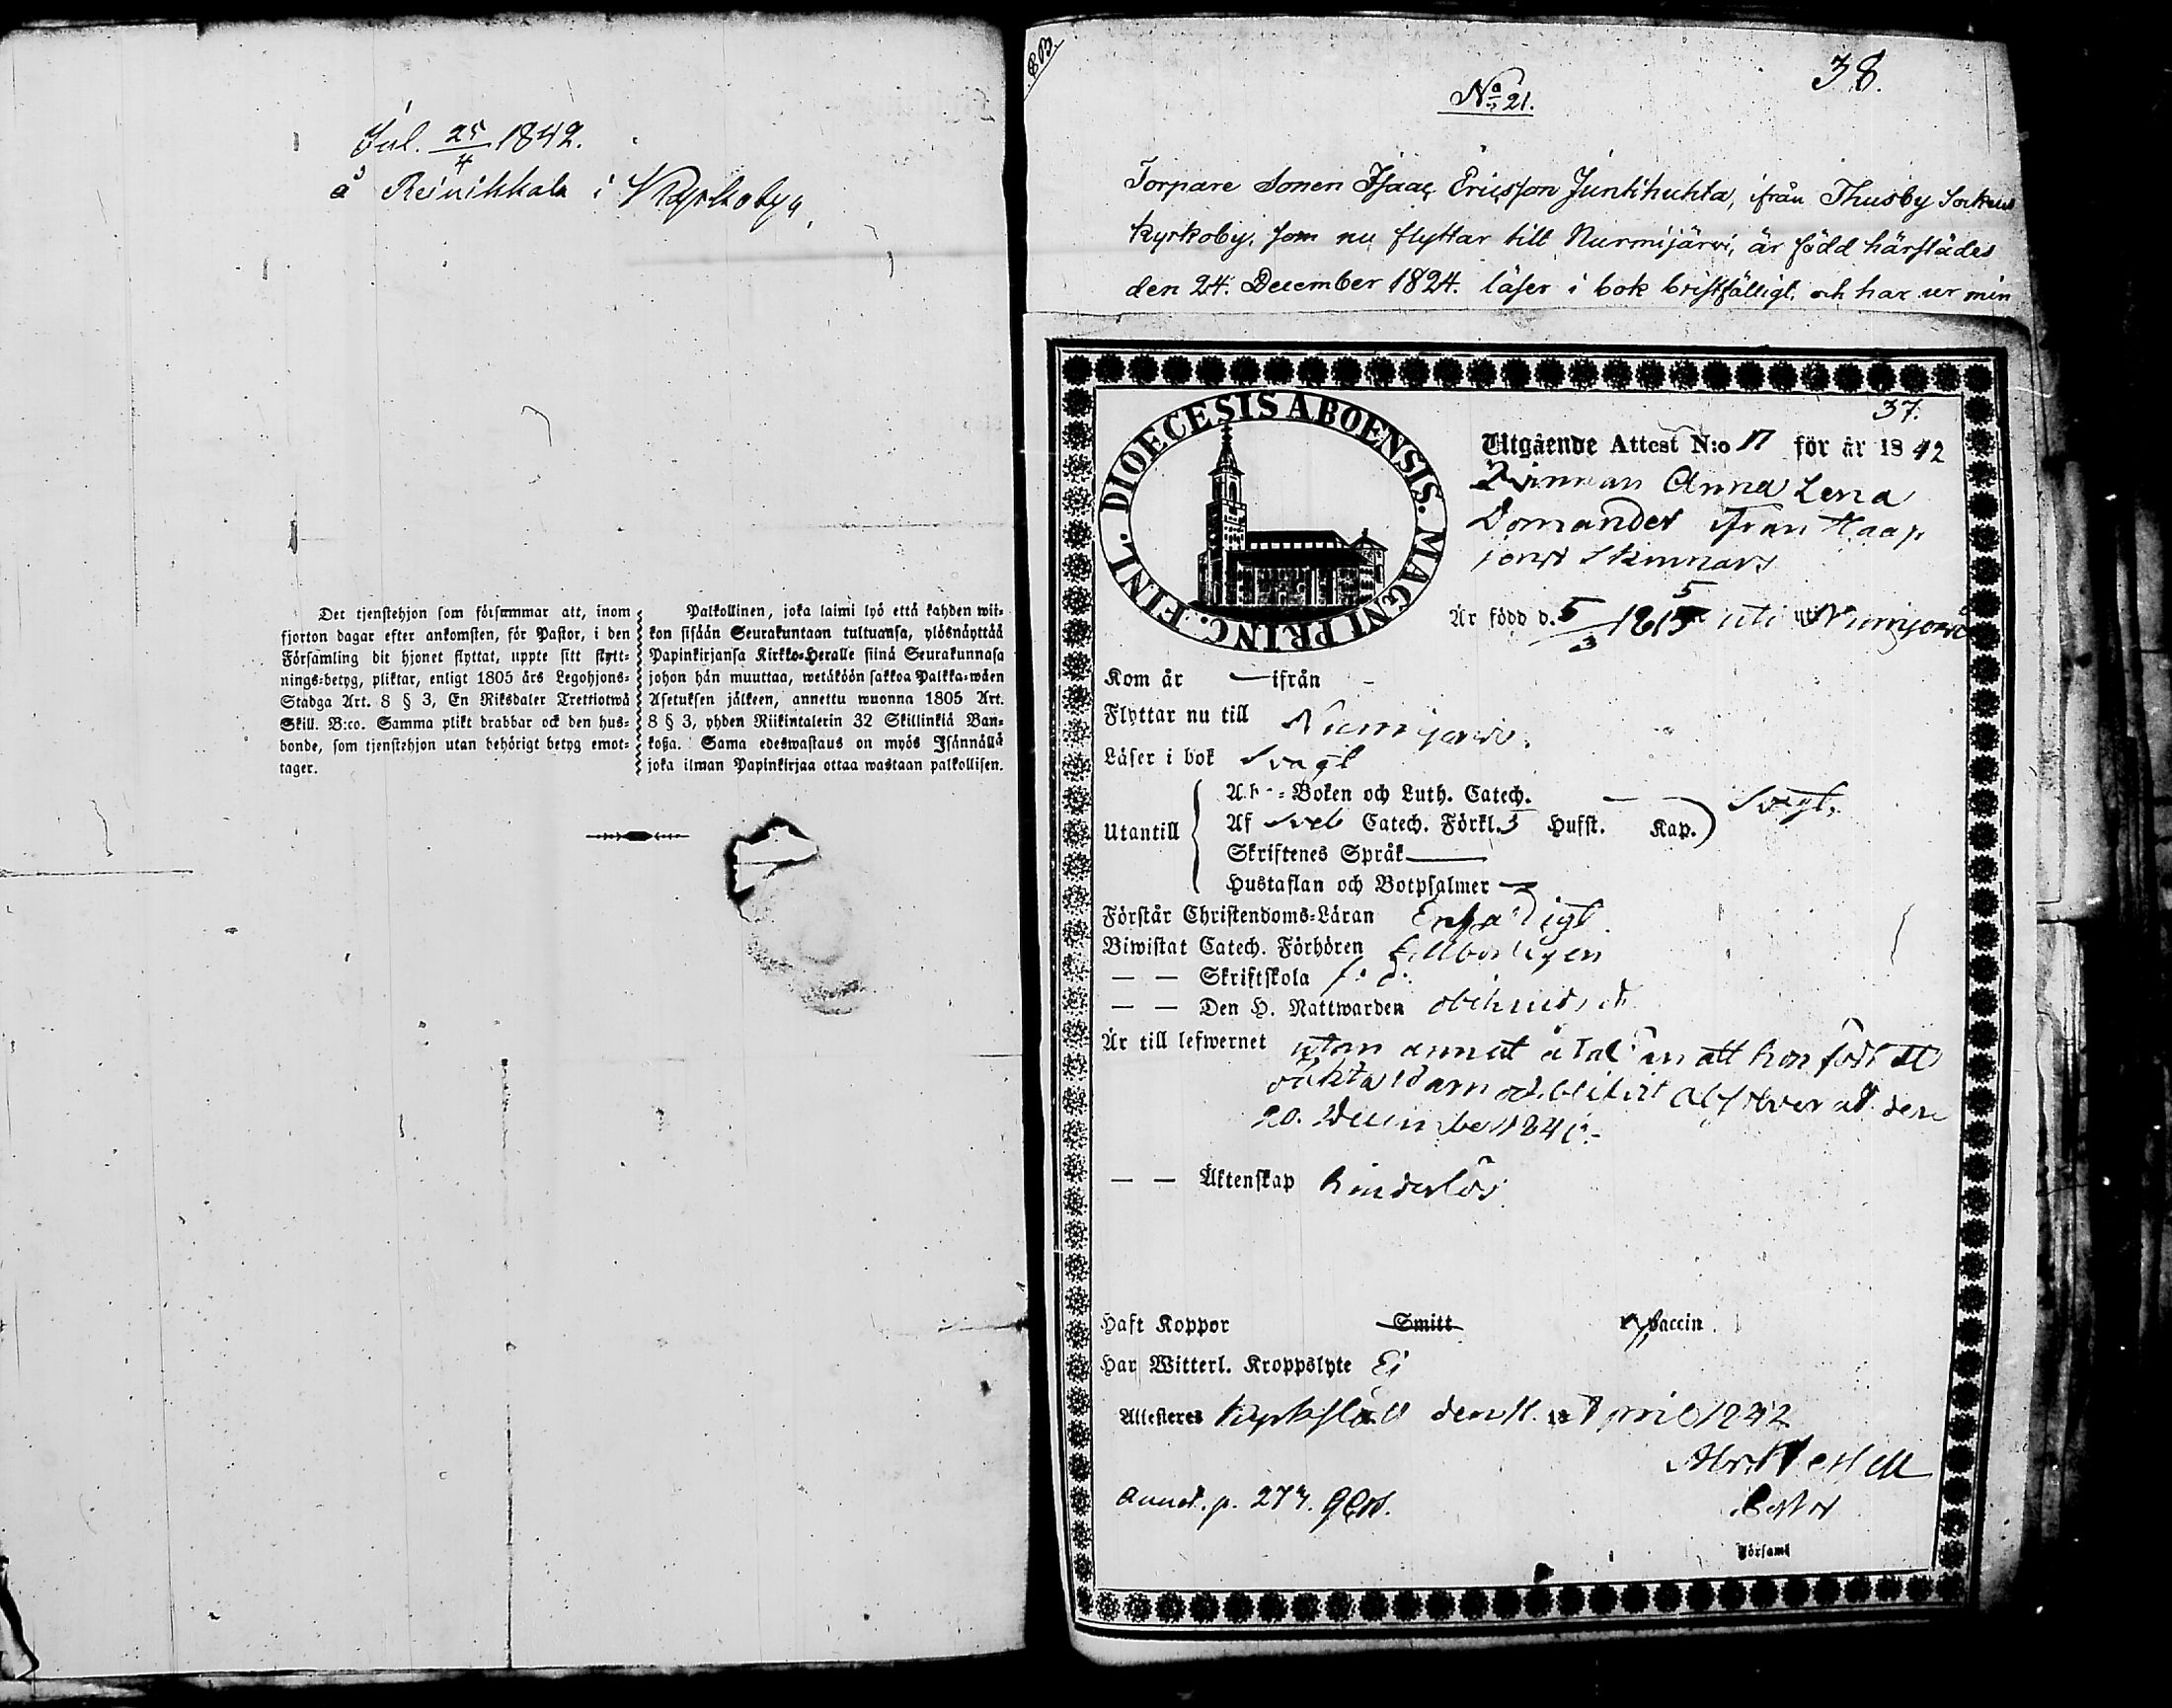 Inl. 25/4 1842.
å Reinikkala i Kyrkobyn,
Det tjenstehjon som försummar att, inom
fjorton dagar efter ankomsten, för Pastor, i den
Församling dit hjonet flyttat, uppte sitt flytt-
nings-betyg, pliktar, enligt 1805 års Legohjons-
Stadga Art. 8 § 3, En Riksdaler Trettiotwå
Skill. B:co. Samma plikt drabbar ock den hus-
bonde, som tjenstehjon utan behörigt betyg emot-
tager.
Palkollinen, joka laimi lyö että kahden wii-
kon sisään Seurakuntaan tultuansa, ylösnäyttää
Papinkirjansa Kirkko-Heralle siinä Seurakunnasa
johon hän muuttaa, wetäköön sakkoa Palkka-wäen
Asetuksen jälkeen, annettu wuonna 1805 Art.
8 § 3, yhden Riikintalerin 32 Skillinkiä Ban-
koßa. Sama edeswastaus on myös Isännällä
joka ilman Papinkirjaa ottaa wastaan palkollisen.
38.
No 21.
Torpare Sonen Isaac Ericsson Juntihuhta, ifrån Thusby Sockens
Kyrkoby, som nu flyttar till Nurmijärwi, är född härstädes
den 24. December 1824. läser i bok bristfälligt, och har ur min
37.
DIOECESIS ABOENSIS. MAGNI PRINC. FINL.
Utgående Attest N:o 17 för år 1842
Qvinnan Anna Lena
Domander ifrån Haap
jerwi Skinnars
Är född d. 5/3 1815 uti Numijerwi
Kom år — ifrån —
Flyttar nu till Numijerwi.
Läser i bok Svagt
Utantill
Ab-Boken och Luth. Catech. —
Af Sveb Catech. Förkl. 3 Hufst. Kap. Svagt.
Skriftenes Språk —
Hustaflan och Botpsalmer —
Förstår Christendoms-Läran Enfaldigt.
Biwistat Catech. Förhören
— — Skriftskola
— — Den H. Nattwarden obehindrad
Är till lefwernet utan annat åtal än att hon födt ett
oäkta barn och blifvit absolverad den
20. December 1841.-
— — Äktenskap hinderlös.
Haft Koppor Smitt Vaccin
Har Witterl. Kroppslyte Ej
Attesteras Kyrkslätt den 11. April 1842
Annot. p. 273.
Församl